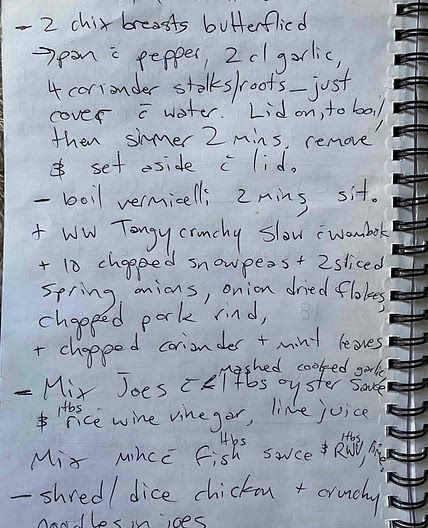 - 2 chix breasts butterflied
→ pan c̄ pepper, 2 cl garlic,
4 coriander stalks/roots - just
cover c̄ water. Lid on, to boil,
then simmer 2 mins, remove
& set aside c̄ lid.
- boil vermicelli 2 mins, sit.
+ WW Tangy crunchy Slaw c̄ wombok
+ 10 chopped snowpeas + 2 sliced
spring onions, onion dried flakes,
chopped pork rind,
+ chopped coriander + mint leaves
mashed cooked garlic
- Mix Joes c̄ 1 tbs oyster sauce
& 1tbs rice wine vinegar, lime juice
Mix mince 1tbs fish sauce & 1tbs RWV,
- shred/dice chicken + crunchy
noodles in joes